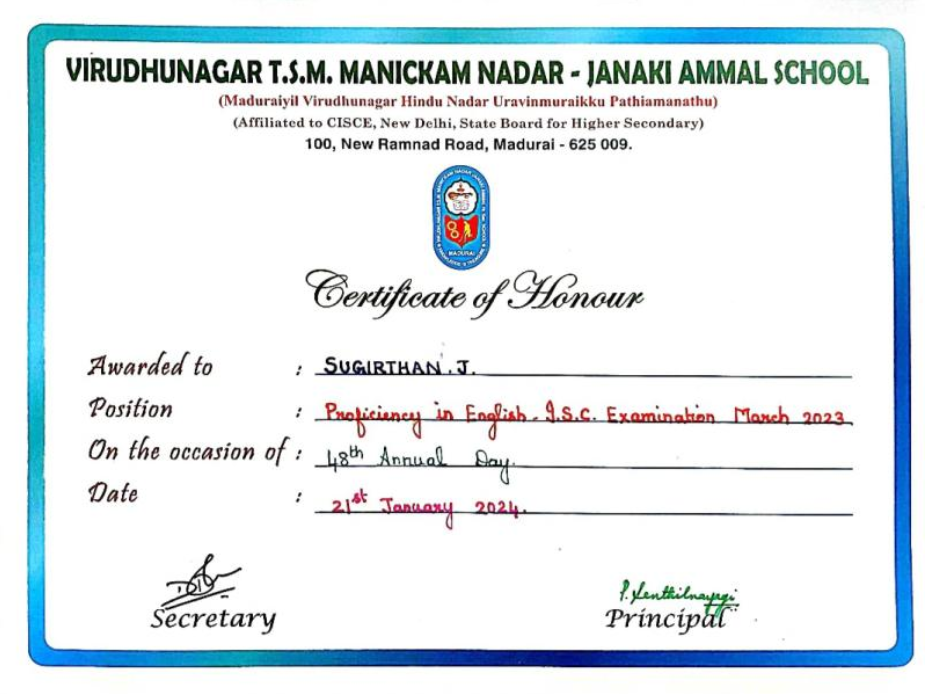 VIRUDHUNAGAR T.S.M. MANICKAM NADAR - JANAKI AMMAL SCHOOL
(Maduraiyil Virudhunagar Hindu Nadar Uravinmuraikku Pathiamanathu)
(Affiliated to CISCE, New Delhi, State Board for Higher Secondary)
100, New Ramnad Road, Madurai - 625 009.
MADURAI
Certificate of Honour
Awarded to : SUGIRTHAN. J.
Position : Proficiency in English - I.S.C. Examination March 2023
On the occasion of : 48th Annual Day.
Date : 21st January 2024.
P. Senthilnayagi
Secretary Principal